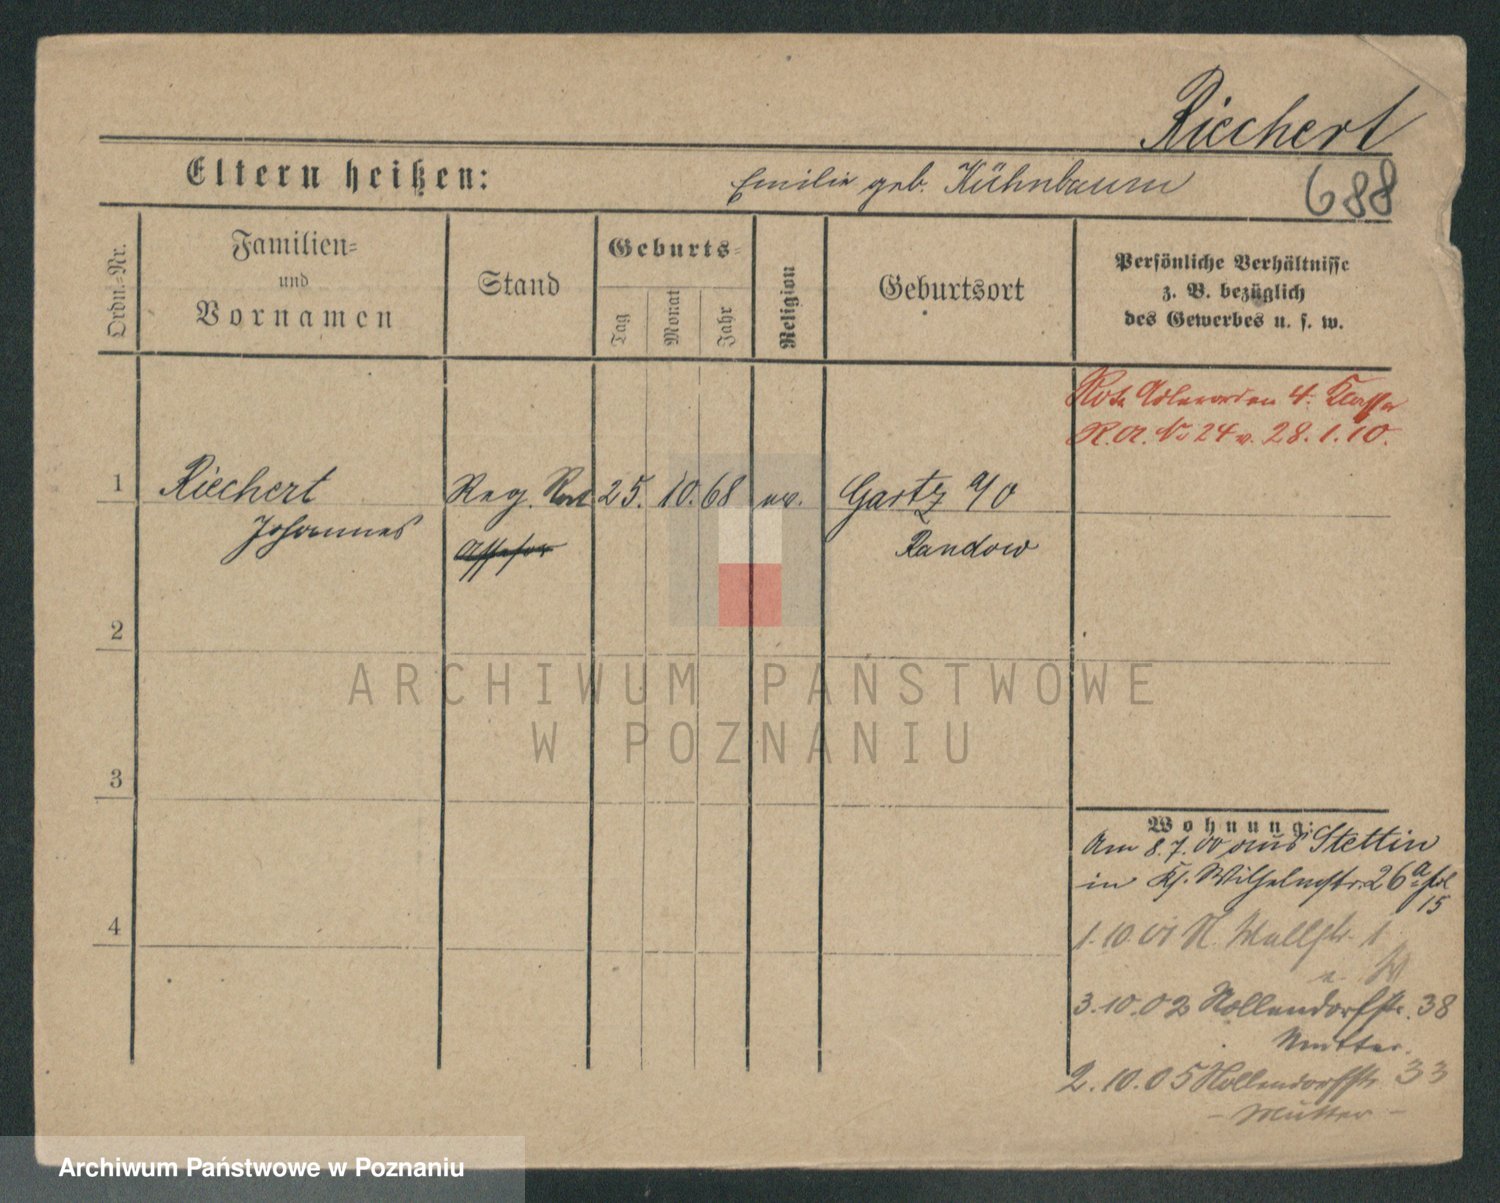 Riechert
Eltern heißen:
Emilie geb. Kühnbaum
688
Ordn.-Nr.
Familien-
und
Vornamen
Stand
Geburts-
Tag
Monat
Jahr
Religion
Geburtsort
Persönliche Verhältnisse
z. B. bezüglich
des Gewerbes u. s. w.
Rote Adlerorden 4. Klasse
R.A. No 24 v. 28.1.10.
1
Riechert
Johannes
Reg. Rat
Assessor
25.
10.
68
ev.
Gartz a/O
Randow
2
3
4
ARCHIWUM PAŃSTWOWE
W POZNANIU
Wohnung:
Am 8.7.00 aus Stettin
in Kl. Wilhelmstr. 26
15
1.10.01 N. Wallstr. 1
3.10.02 Nollendorfstr. 38
Mutter.
2.10.05 Nollendorfstr. 33
- Mutter -
Archiwum Państwowe w Poznaniu